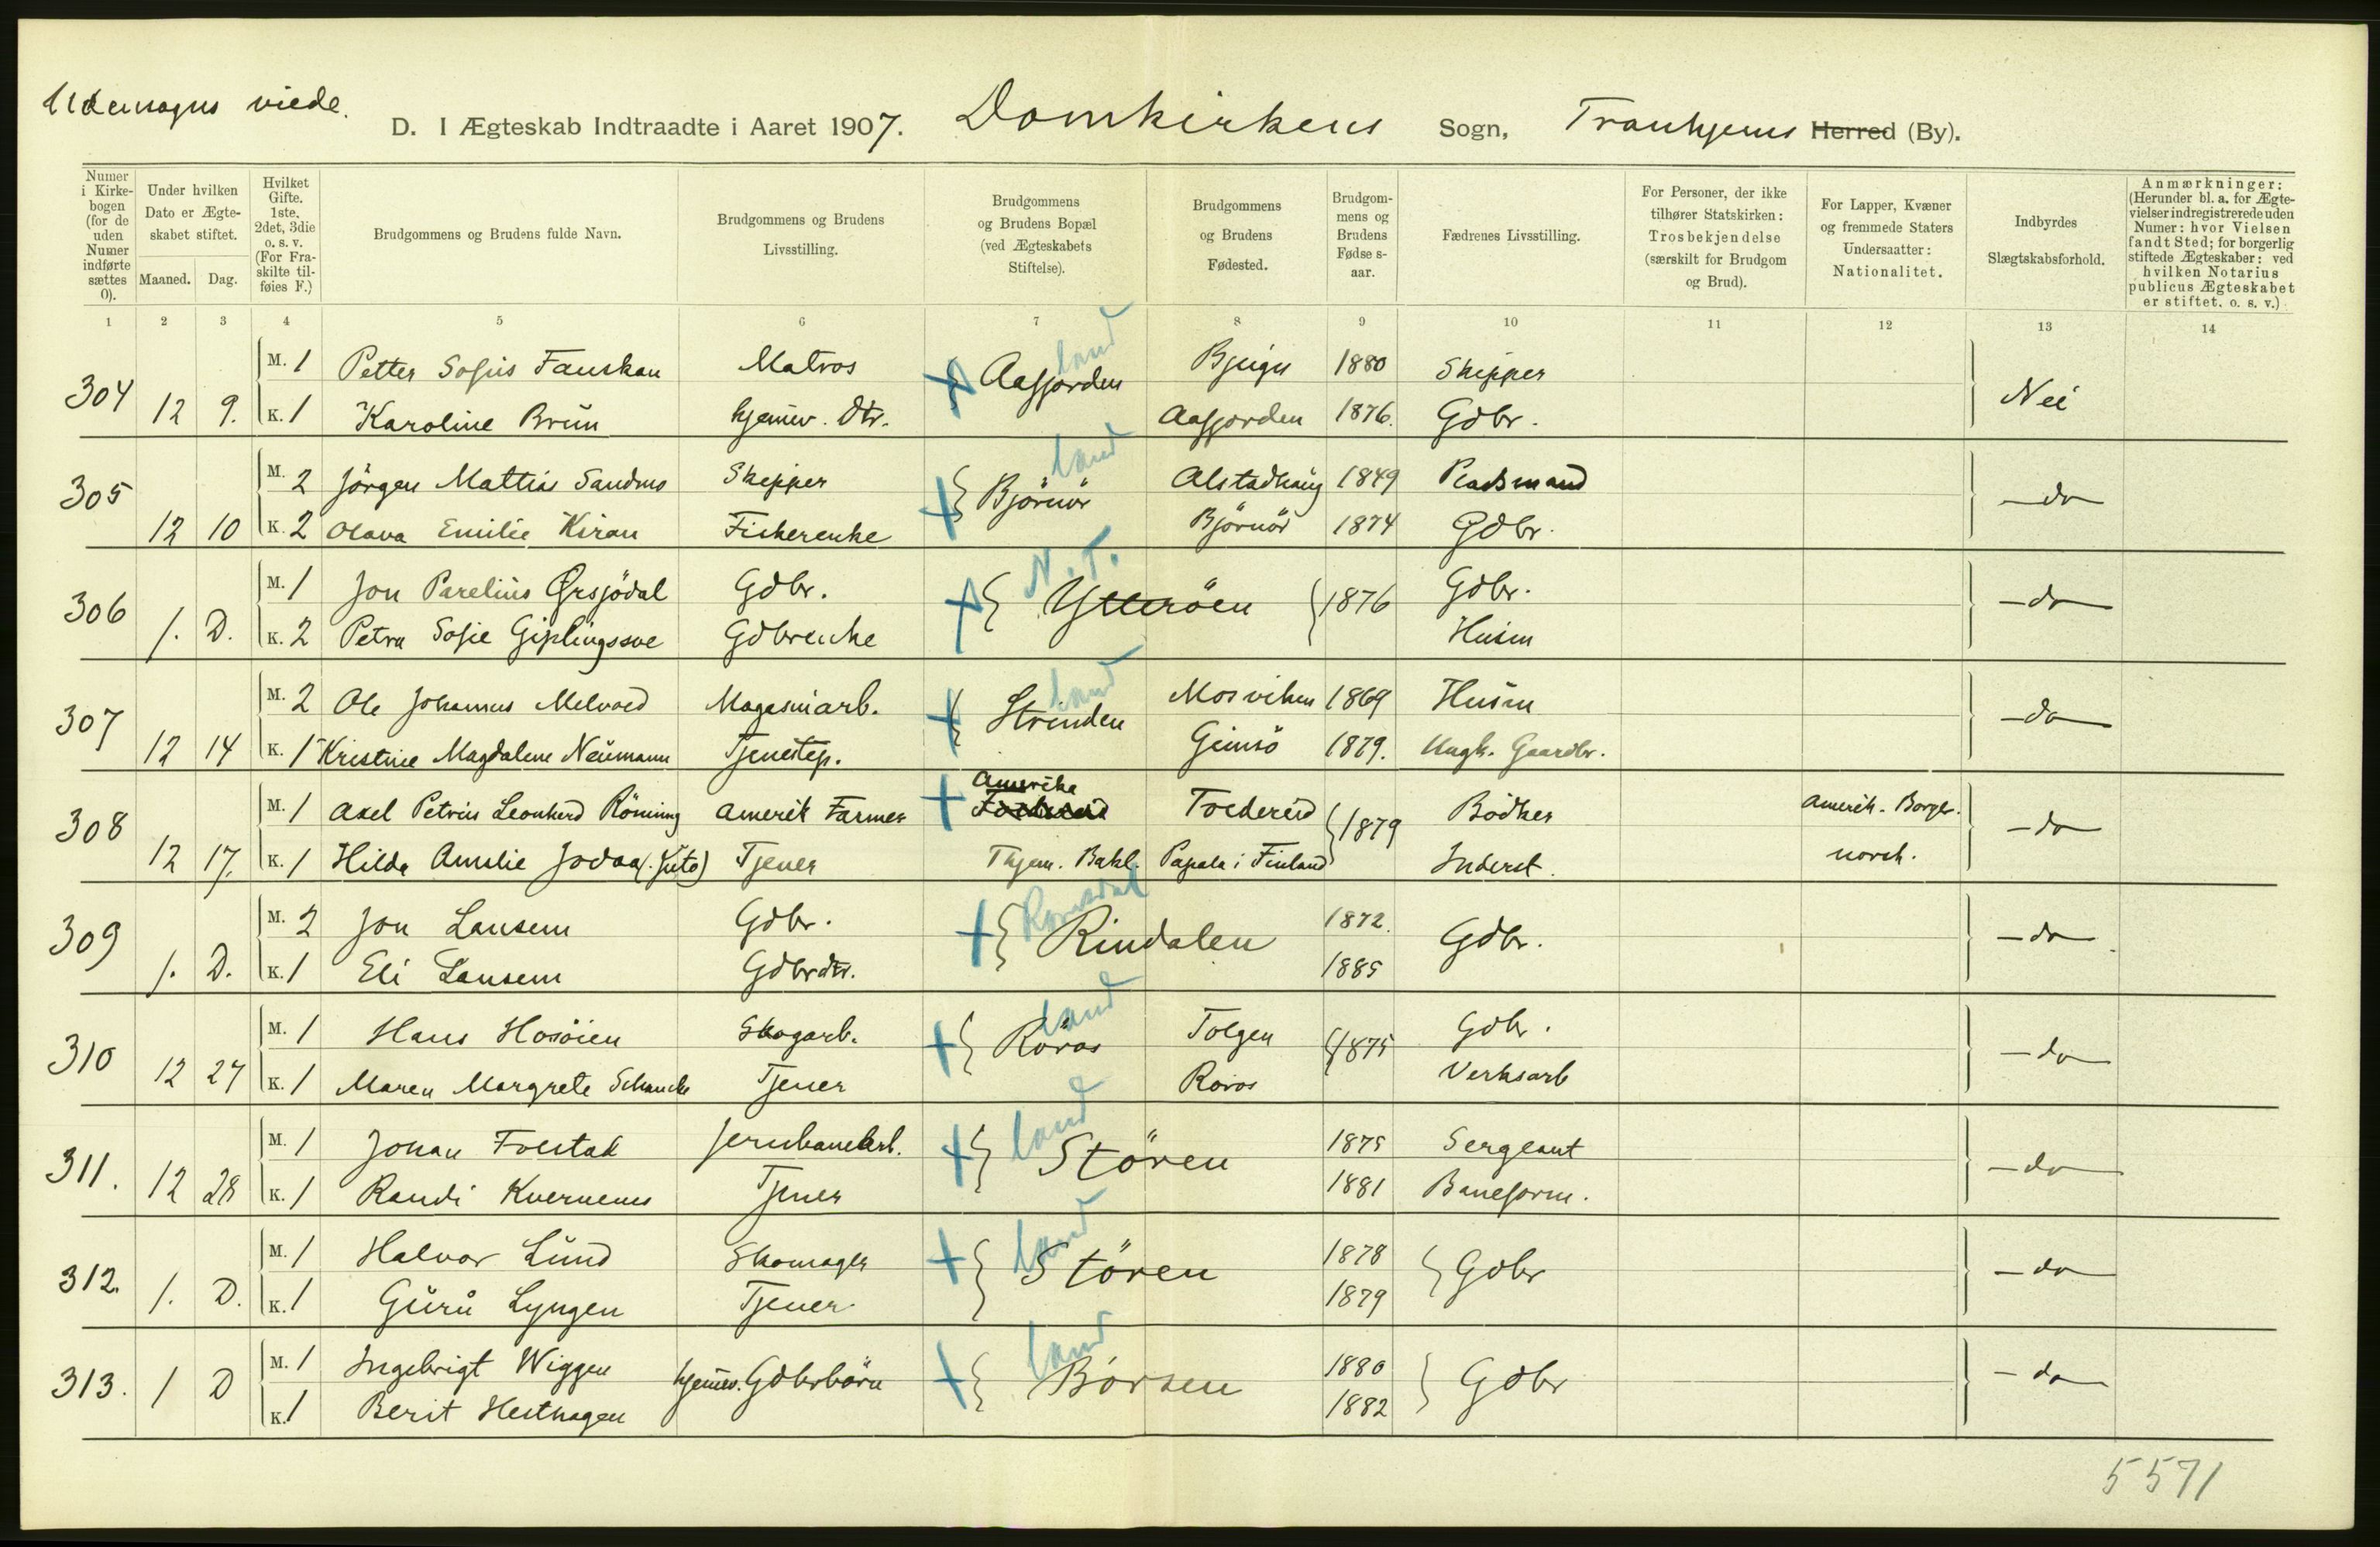 Udensogns viede.
D. I Ægteskab Indtraadte i Aaret 1907. Domkirkens Sogn, Tronhjems Herred (By).
Numer i Kirkebogen (for de uden Numer indførte sættes 0).
Under hvilken Dato er Ægteskabet stiftet.
Maaned. Dag.
Hvilket Gifte. 1ste, 2det, 3die o. s. v. (For Fraskilte tilføies F.)
Brudgommens og Brudens fulde Navn.
Brudgommens og Brudens Livsstilling.
Brudgommens og Brudens Bopæl (ved Ægteskabets Stiftelse).
Brudgommens og Brudens Fødested.
Brudgommens og Brudens Fødselsaar.
Fædrenes Livsstilling.
For Personer, der ikke tilhører Statskirken: Trosbekjendelse (særskilt for Brudgom og Brud).
For Lapper, Kvæner og fremmede Staters Undersaatter: Nationalitet.
Indbyrdes Slægtskabsforhold.
Anmærkninger: (Herunder bl. a. for Ægtevielser indregistrerede uden Numer: hvor Vielsen fandt Sted; for borgerlig stiftede Ægteskaber: ved hvilken Notarius publicus Ægteskabet er stiftet. o. s. v.)
1 2 3 4 5 6 7 8 9 10 11 12 13 14
304 12 9. M. 1 Petter Sofus Fauskan Matros Aafjorden land Bjugn 1880 Skipper Nei
K. 1 Karoline Brun hjemv. Dtr. Aafjorden 1876. Gdbr.
305 12 10 M. 2 Jörgen Mattias Sandmo Skipper Björnör land Alstadhaug 1849 Pladsmand do
K. 2 Olava Emilie Kiran Fiskerenke Björnör 1874 Gdbr.
306 1. D. M. 1 Jon Parelius Ørsjödal Gdbr. Ytteröen N. T. 1876 Gdbr. do
K. 2 Petra Sofie Giplingsøe Gdbrenke Husm
307 12 14 M. 2 Ole Johannes Melvold Magasinarb. Strinden land Mosviken 1869 Husm do
K. 1 Kristine Magdalene Neumann Tjenestep. Gimsö 1879. Ungk. Gaardbr.
308 12 17. M. 1 Axel Petrus Leonhard Röning Amerik Farmer Amerika Foldereid 1879 Bödker Amerik. Borger. do
K. 1 Hilda Amalie Jodaa (Juto) Tjener Thjem. Bakl. Papala i Finland Inderst. norsk.
309 1. D. M. 2 Jon Lansem Gdbr. Rindalen Romsdal 1872. Gdbr. do
K. 1 Eli Lansem Gdbrdtr. 1885
310 12 27 M. 1 Hans Hosöien Skogarb. Röros land Tolgen 1875 Gdbr. do
K. 1 Maren Margrete Schancke Tjener Röros Verksarb
311. 12 28 M. 1 Johan Folstad Jernbanearb. Stören land 1875 Sergeant do
K. 1 Randi Kvernenes Tjener 1881 Baneform.
312. 1. D. M. 1 Halvor Lund Skomager Stören land 1878 Gdbr do
K. 1 Guru Lyngen Tjener 1879
313. 1 D M. 1 Ingebrigt Wiggen hjemv. Gdbrbörn Börsen land 1880 Gdbr do
K. 1 Berit Hesthagen 1882
5571